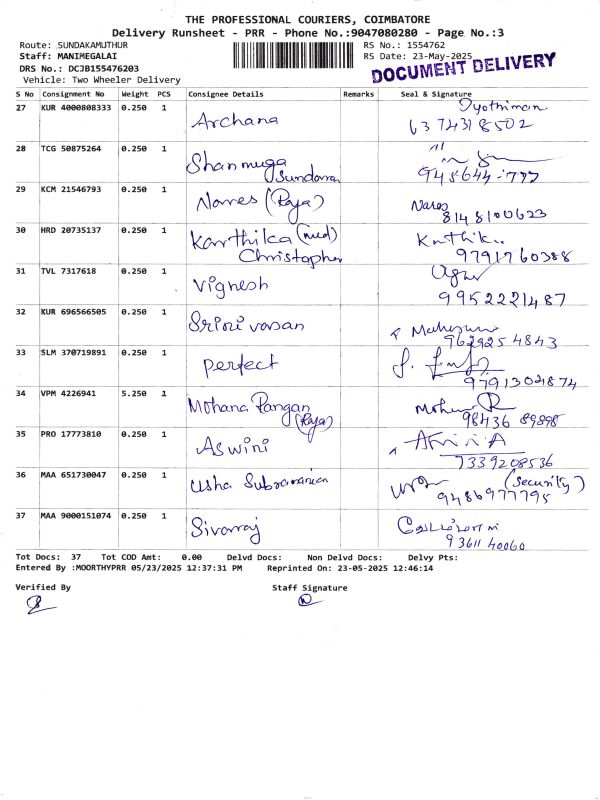 THE PROFESSIONAL COURIERS, COIMBATORE
Delivery Runsheet - PRR - Phone No.:9047080280 - Page No.:3
Route: SUNDAKAMUTHUR RS No.: 1554762
Staff: MANIMEGALAI RS Date: 23-May-2025
DRS No.: DCJB155476203
Vehicle: Two Wheeler Delivery
DOCUMENT DELIVERY
S No Consignment No Weight PCS Consignee Details Remarks Seal & Signature
27 KUR 4000808333 0.250 1 Archana Jyothiman
6374318502
28 TCG 50875264 0.250 1 Shanmuga
Sundaram
29 KCM 21546793 0.250 1 Nares (Raja) Nares
8148100623
30 HRD 20735137 0.250 1 Karthika (med) Karthik
Christopher 9791760388
31 TVL 7317618 0.250 1 Vignesh
9952221487
32 KUR 696566505 0.250 1 Srinivasan
9629254843
33 SLM 370719891 0.250 1 Perfect
9791302874
34 VPM 4226941 5.250 1 Mohana Rangan Mohan
(Raja) 98436 89898
35 PRO 17773810 0.250 1 Aswini
7339208536
36 MAA 651730047 0.250 1 Usha Subramanian (Security)
9486977795
37 MAA 9000151074 0.250 1 Sivarraj
93611 40060
Tot Docs: 37 Tot COD Amt: 0.00 Delvd Docs: Non Delvd Docs: Delvy Pts:
Entered By :MOORTHYPRR 05/23/2025 12:37:31 PM Reprinted On: 23-05-2025 12:46:14
Verified By Staff Signature